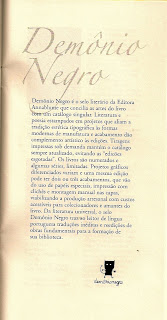 Demônio
Negro
Demônio Negro é o selo literário da Editora
Annablume que concilia as artes do livro
com um catálogo singular. Literatura e
poesia estampados em projetos que aliam a
tradição estética tipográfica às formas
modernas de manufatura e acabamento dão
complemento artístico às edições. Tiragens
impressas sob demanda mantêm o catálogo
sempre atualizado, evitando as "edições
esgotadas". Os livros são numerados e
algumas séries, limitadas. Projetos gráficos
diferenciados variam e uma mesma edição
pode ter dois ou três acabamentos, que vão
do uso de papéis especiais, impressão com
clichês e montagem manual nas tags,
viabilizando a produção artesanal com custos
acessíveis para colecionadores e amantes do
livro. Da literatura universal, o selo
Demônio Negro trará aos leitores de língua
portuguesa traduções inéditas e reedições de
obras fundamentais para a formação de
sua biblioteca.